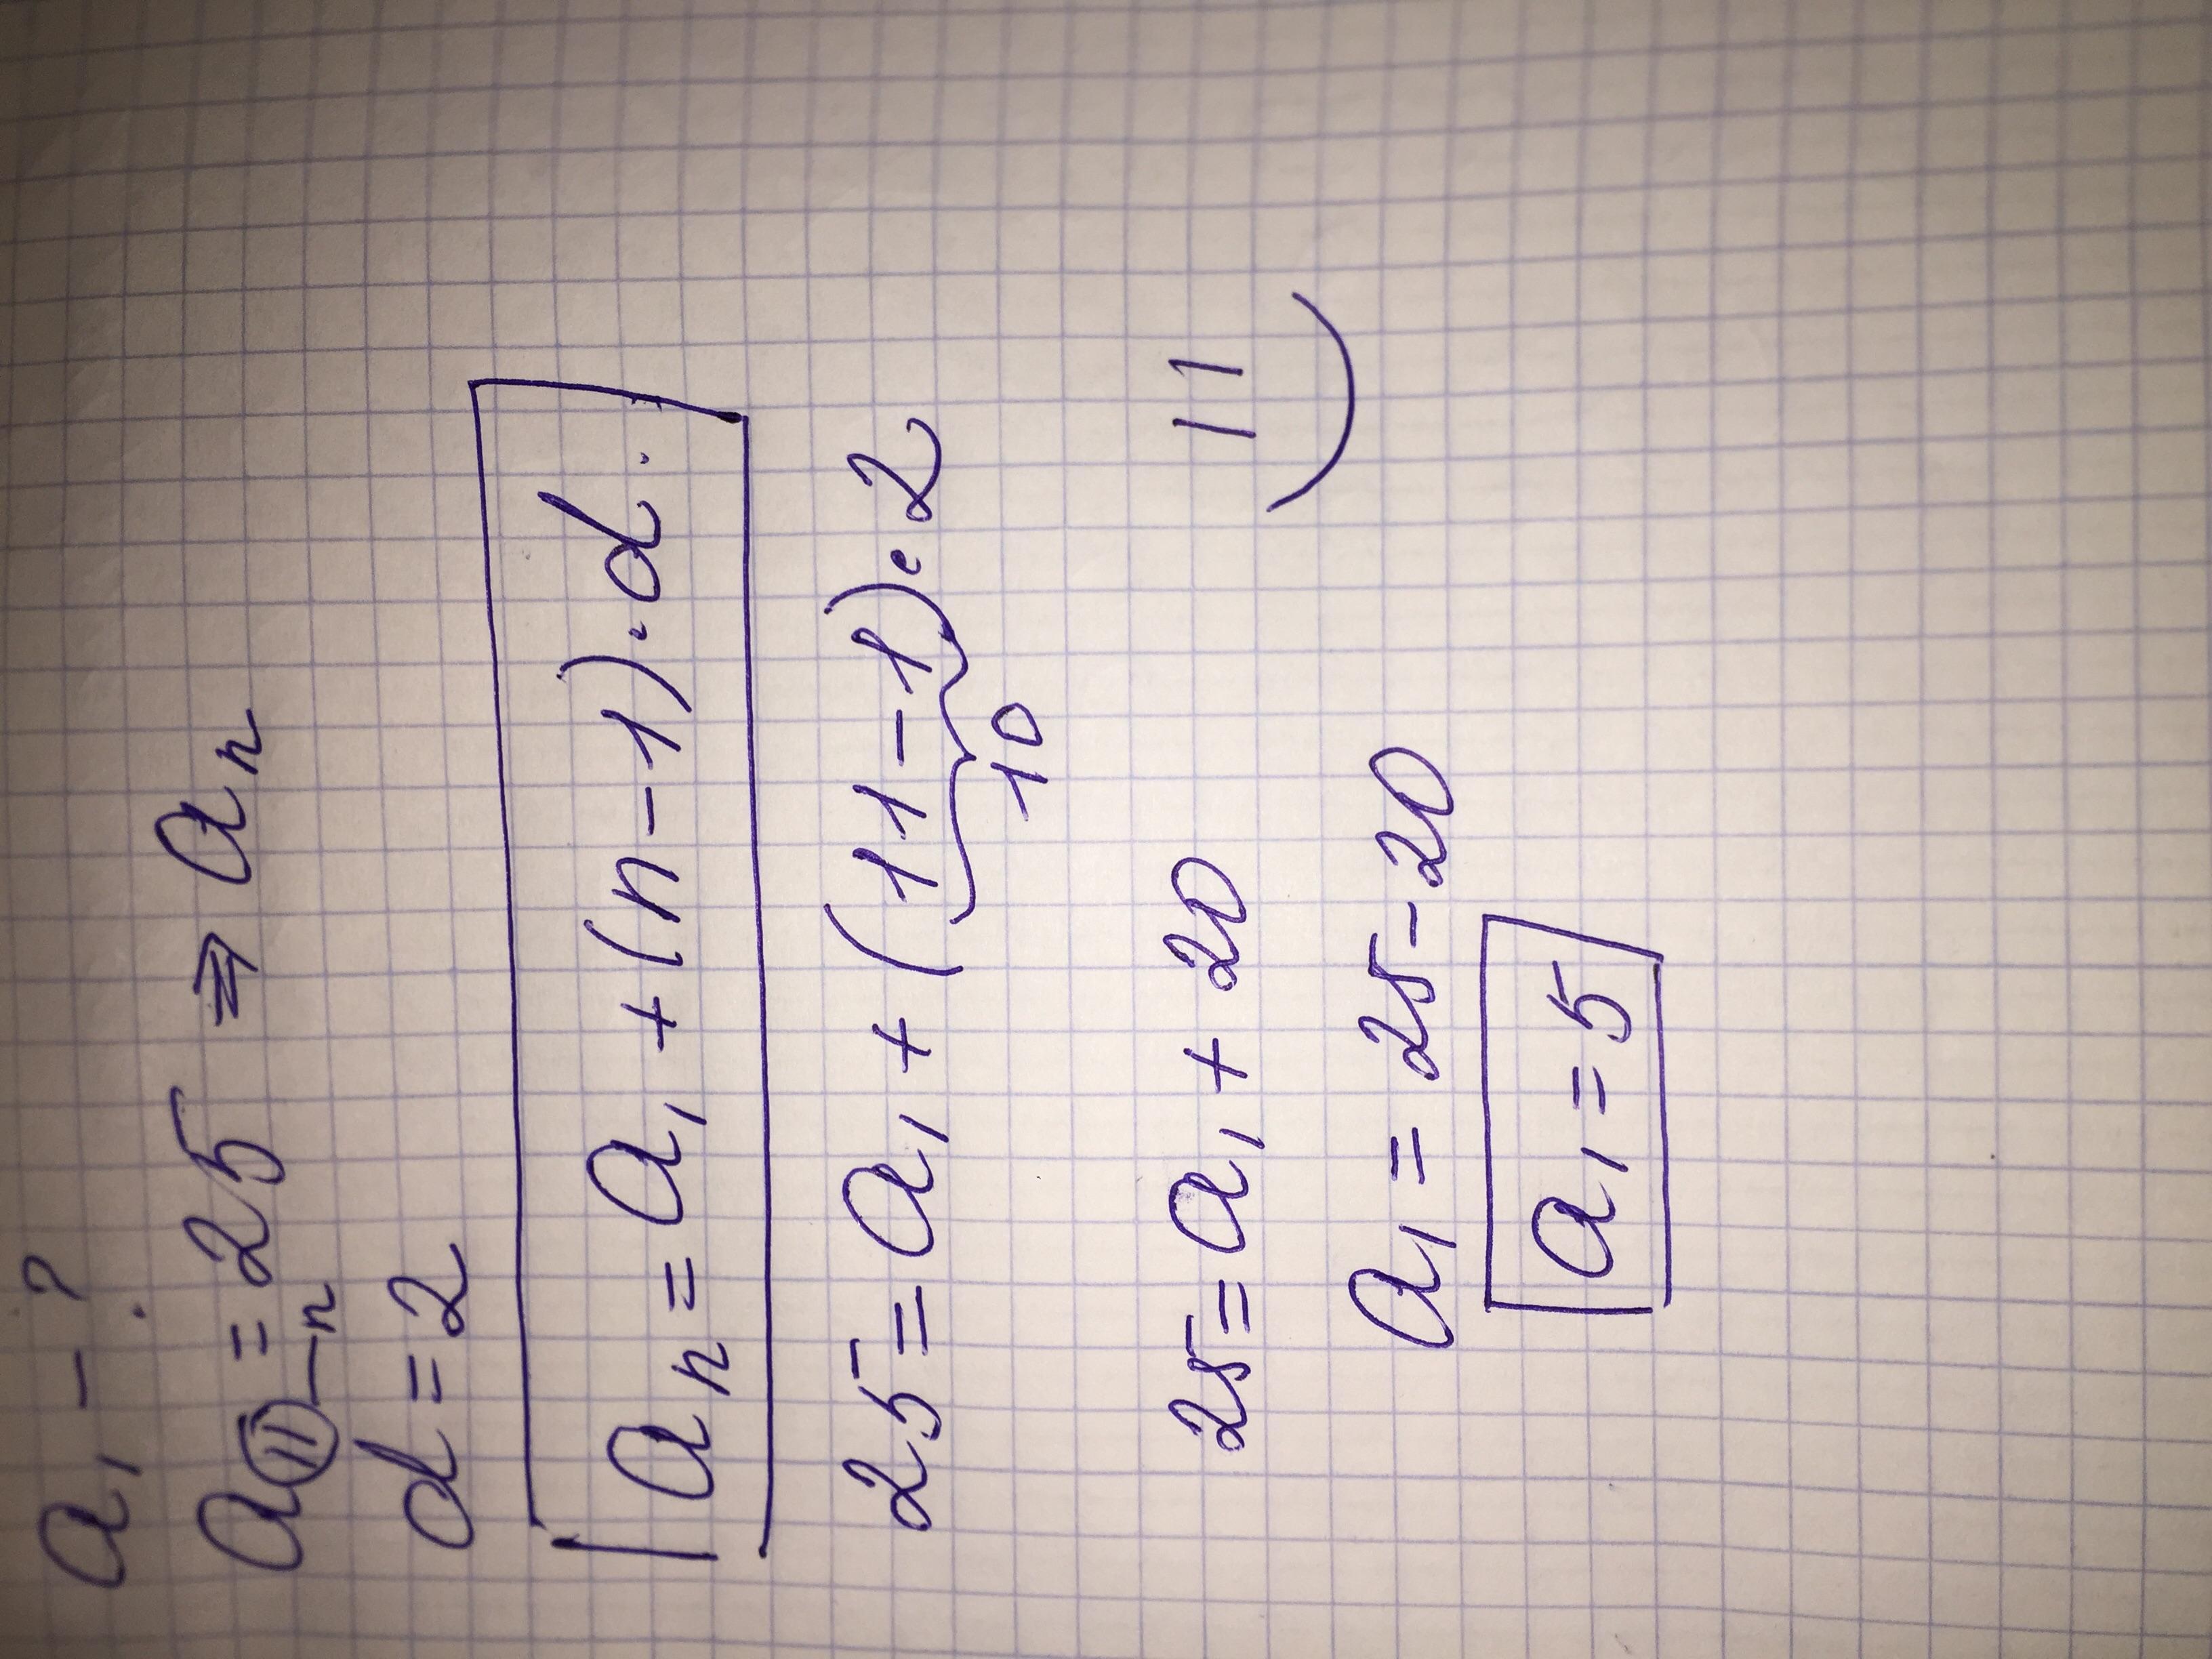 a₁ - ?
a₁₁ = 25 ⇒ aₙ
n
d = 2
aₙ = a₁ + (n-1)·d.
25 = a₁ + (11-1)·2
10
25 = a₁ + 20 ||
a₁ = 25-20 )
a₁ = 5